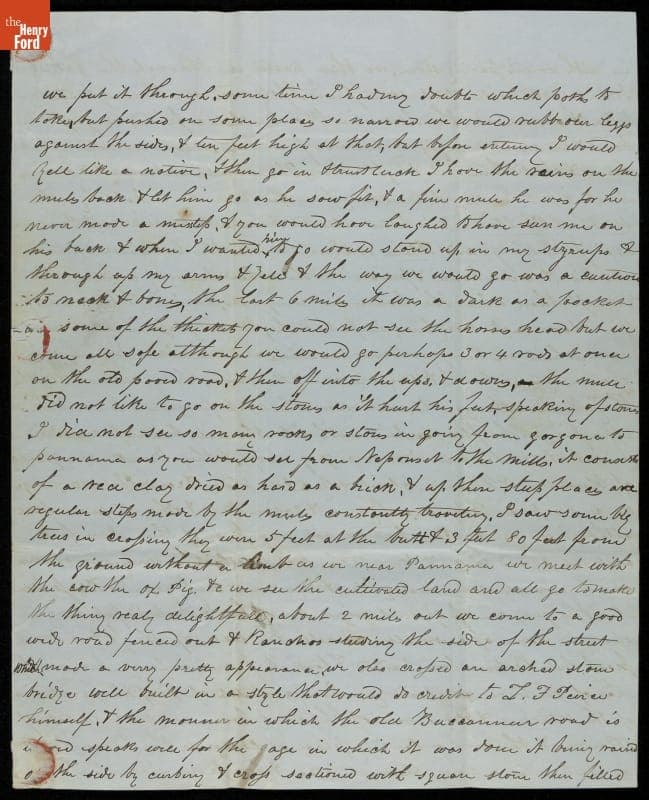 the
Henry
Ford
we put it through, some time I had my doubts which poths to
take, but pushed on some places so narrow we would rubb our leggs
against the sides, & ten feet high at that, but before entering I would
Yell like a native, & then go in I hove the rains on the
mules back & let him go as he sow fit, & a fine mule he was for he
never mode a misstep, & you would hove loughed to hove seen me on
his back & when I wanted him to go would stond up in my styrups &
through up my arms & Yell & the way we would go was a caution
to neck & bones, the last 6 miles it was a dark as a pocket
some of the thickets you could not see the horses head but we
come all sofe although we would go perhaps 3 or 4 rods at once
on the old poved road, & then off into the ups, & downs, the mule
did not like to go on the stones as it hurt his feet, speaking of stones
I did not see so many rocks or stones in going from gorgona to
pannama as you would see from Neponset to the Mills, it consists
of a red clay dried as hard as a brick, & up then steep places are
regular steps made by the mules constantly traveling, I saw some big
trees in crossing they were 5 feet at the butt & 3 feet 80 feet from
the ground without a limb as we near Pannama we meet with
the cow the ox Pig, &c we see the cultivated land and all go to make
the thing realy delightfull, about 2 miles out we come to a good
wide road fenced out & Ranchos studing the side of the street
which made a verry pretty appearance, we olso crossed an arched stone
bridge well built in a style that would do credit to
himself, & the manner in which the old Buccanneer road is
speaks well for the age in which it was done it being raised
on the side by curbing & cross sectioned with square stone then filled